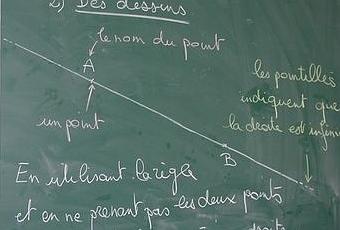 2) Des dessins
le nom du point
A
les pointillés
indiquent que
la droite est infinie
un point
B
En utilisant la règle
et en ne prenant pas les deux points